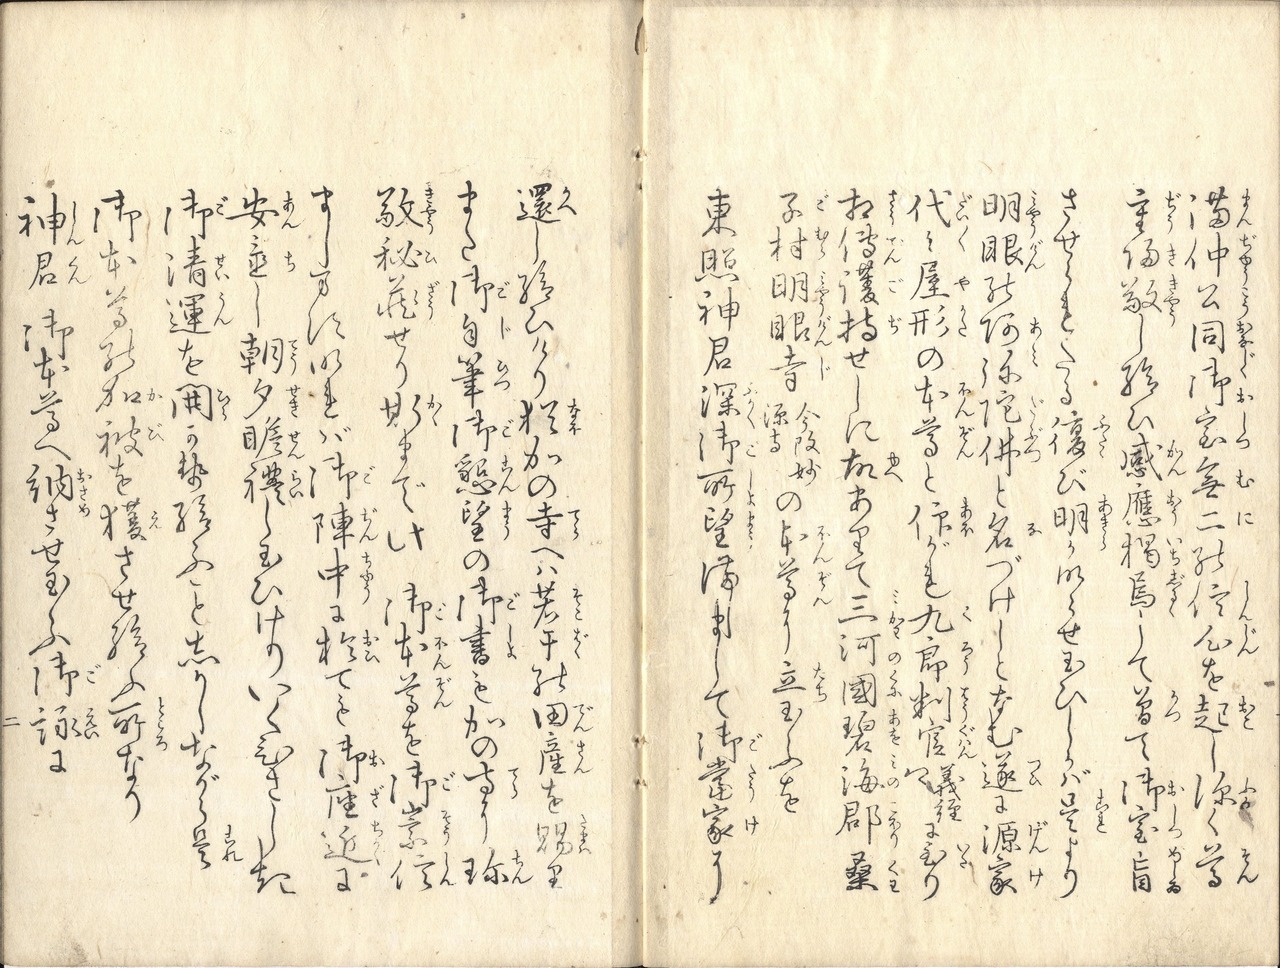 満仲公同御室無二の信心を起し深く尊
重帰敬し給ひ感應掲焉して曽て御室盲
させられたる復び明らけくせ玉ひしかば是より
明眼の阿弥陀佛と名づけしとなむ遂に源家
代々屋形の本尊と作られ九郎判官義経に至り
相傳護持せしに故ありて三河國碧海郡桑
子村明眼寺今改妙源寺の本尊に立玉ふを
東照神君深御所望満まして御當家に
還し給ひけり扨かの寺へハ若干の田産を賜里
また御自筆御懇望の御書もかの寺に珍
敬秘蔵せり斯まで此 御本尊を御崇信
まし満ければ御陣中に於ても御座近に
安置し朝夕瞻禮し玉ひけり
御清運を開かせ給ふこと志かしながら是
御本尊の加被を獲させ給ふ所なり
神君 御本尊へ納させ玉ふ御詠に
二